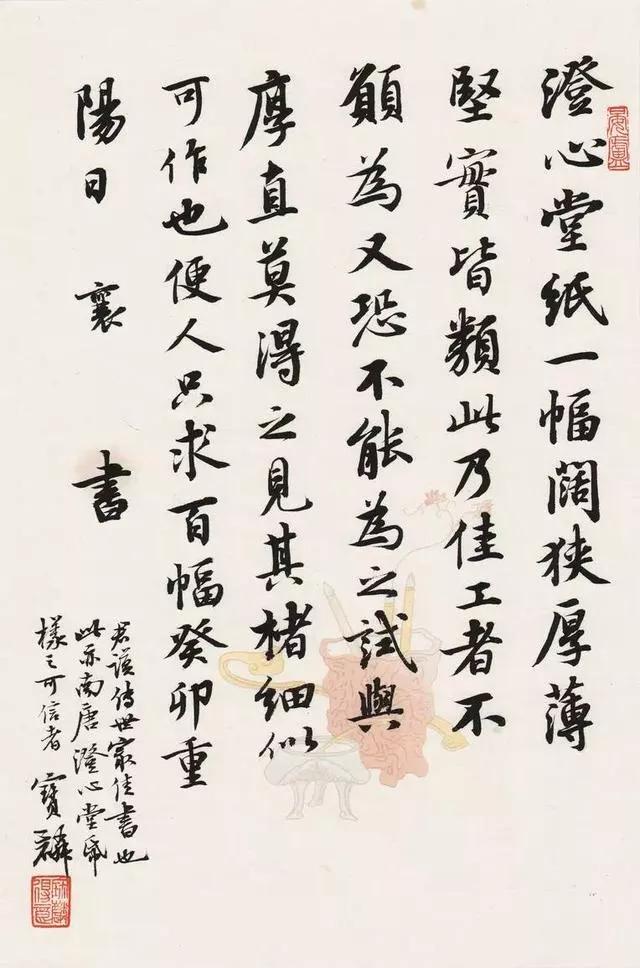 澄心堂紙一幅闊狹厚薄
堅實皆類此乃佳工者不
願為又恐不能為之試與
厚直莫得之見其楮細似
可作也便人只求百幅癸卯重
陽日 襄 書
君謨傳世最佳書也
此亦南唐澄心堂帋
樣之可信者 寶麟